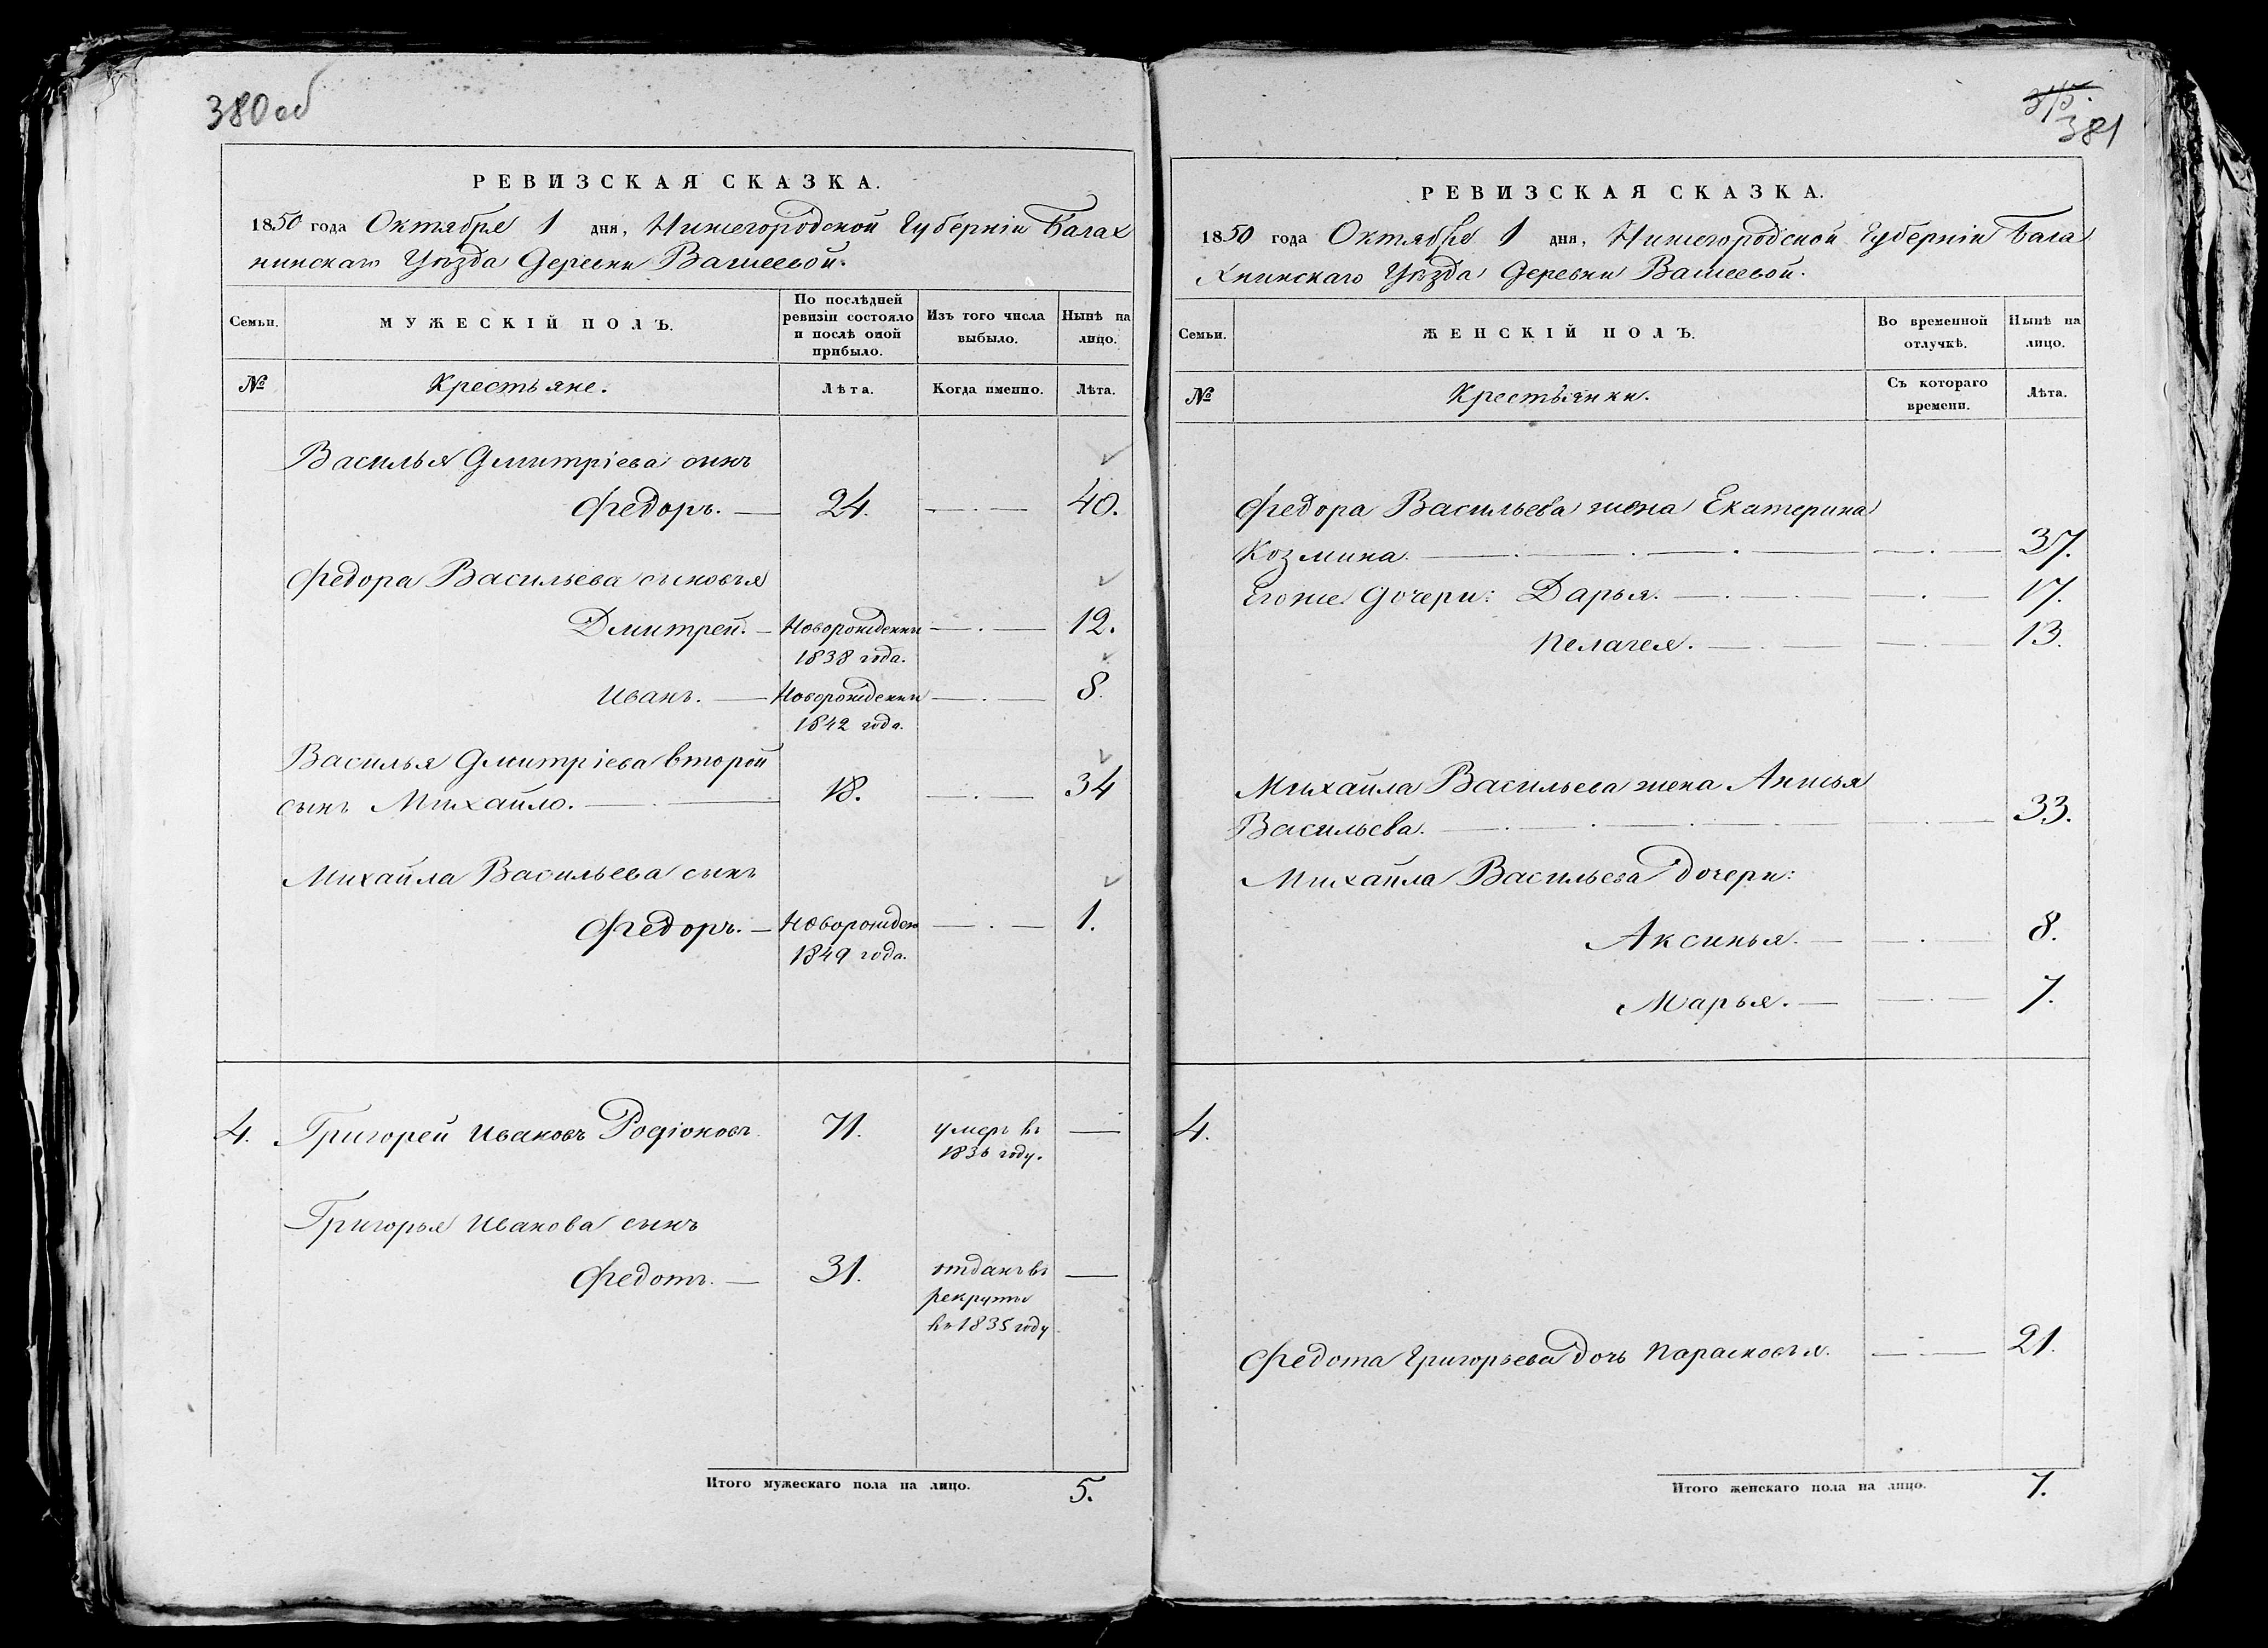 380об
РЕВИЗСКАЯ СКАЗКА.
1850 года Октября 1 дня, Нижегородской Губерніи Балах
нинскаго Уѣзда Деревни
Семьи.
МУЖЕСКІЙ ПОЛЪ.
По послѣдней ревизіи состояло и послѣ оной прибыло.
Изъ того числа выбыло.
Нынѣ на лицо.
№
Крестьяне.
Лѣта.
Когда именно.
Лѣта.
Василья Дмитріева сынъ
Федоръ. — 24. — 40.
Федора Васильева сыновья
Дмитрей. — Новорожденъ — 12.
1838 года.
Иванъ. — Новорожденъ — 8.
1842 года.
Василья Дмитріева второй
сынъ Михайло. — 18. — 34
Михайла Васильева сынъ
Федоръ. — Новорожден — 1.
1849 года.
4. Григорей Ивановъ Родіоновъ. 71. умеръ въ —
1836 году.
Григорья Иванова сынъ
Федотъ. — 31. отданъ въ —
рекруты
въ 1835 году
Итого мужескаго пола на лицо. 5.
381
РЕВИЗСКАЯ СКАЗКА.
1850 года Октября 1 дня, Нижегородской Губерніи Бала
хнинскаго Уѣзда Деревни
Семьи.
ЖЕНСКІЙ ПОЛЪ.
Во временной отлучкѣ.
Нынѣ на лицо.
№
Крестьянки.
Съ котораго времени.
Лѣта.
Федора Васильева жена Екатерина
Козмина. — 37.
Егоже Дочери: Дарья. — 17.
Пелагея. — 13.
Михайла Васильева жена Анисья
Васильева. — 33.
Михайла Васильева Дочери:
Аксинья. — 8.
Марья. — 7.
4.
Федота Григорьева Дочь Парасковья. — 21.
Итого женскаго пола на лицо. 7.